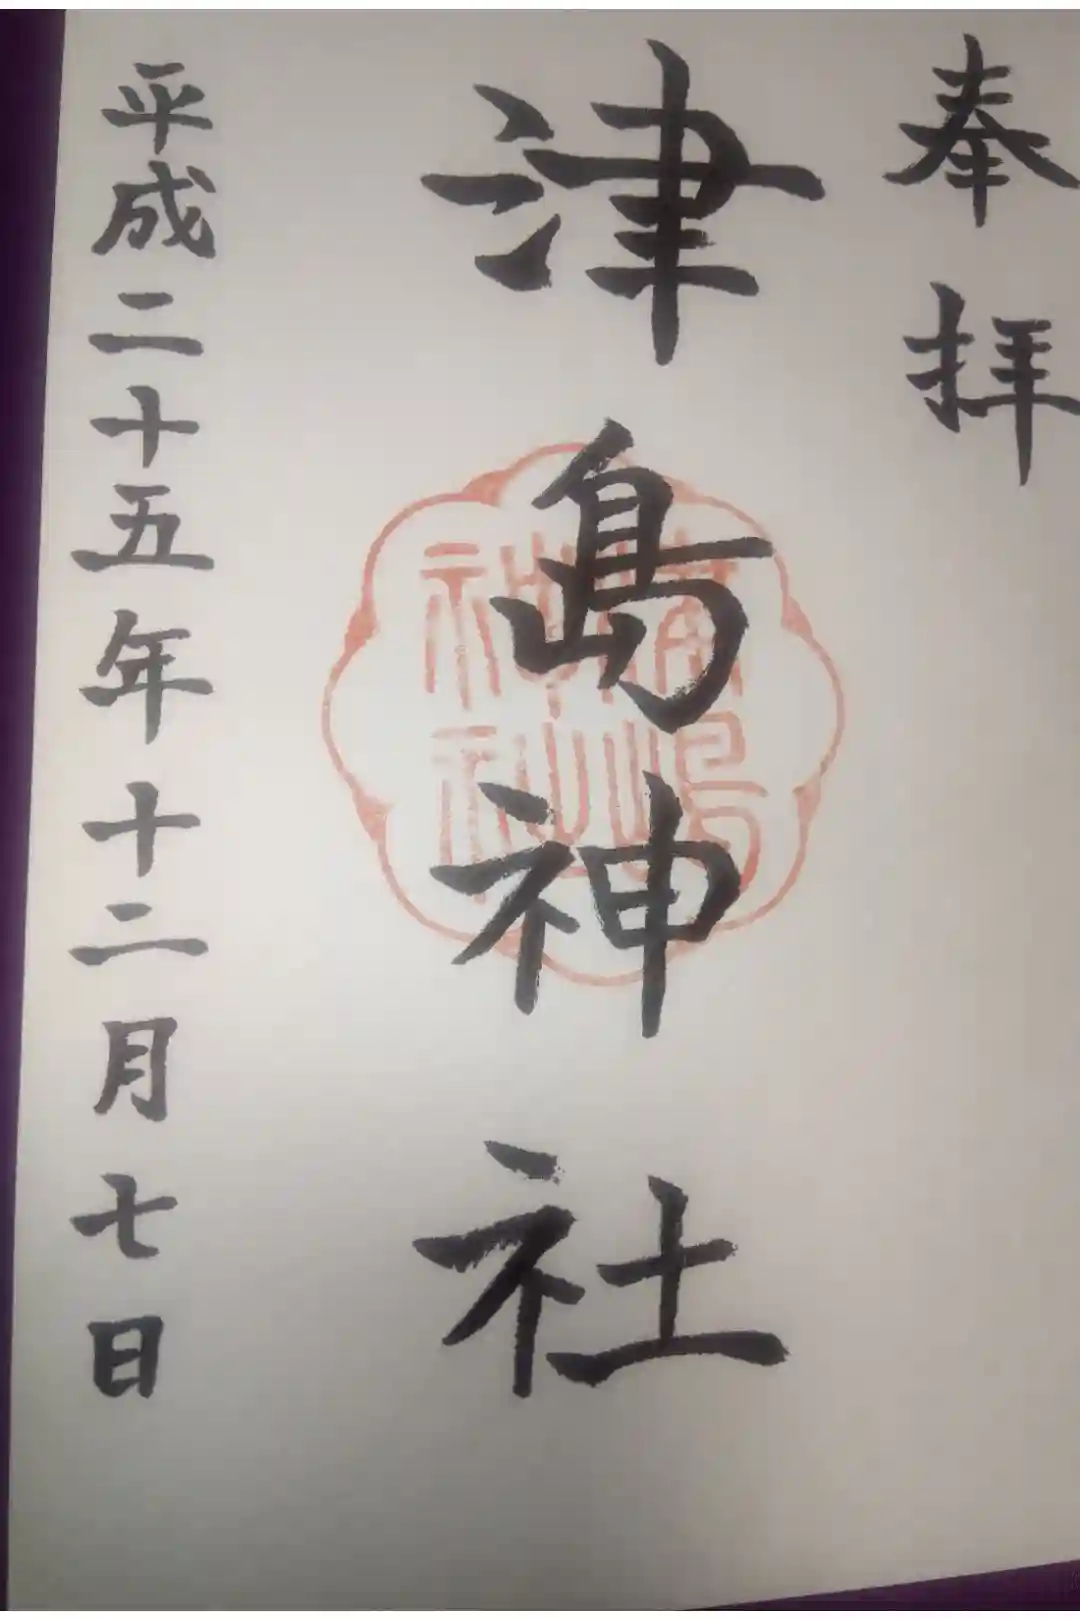 奉拝
津島神社
津嶋神社
平成二十五年十二月七日